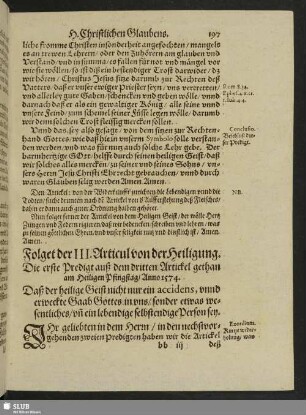 H. Christlichen Glaubens. 197
liche fromme Christen insonderheit angefochten / mangels
es an trewen Lehrern / oder den Zuhörern am glauben vnd
Verstand / vnd in summa / es fallen für not vnd mängel vor
wie sie wöllen / so ist diß ein bestendiger Trost darwider / daß
wir hören / Christus Jesus sitze darumb zur Rechten deß
Vatters / daß er vnser ewiger Priester seyn / vns vertretten /
vnd allerley gute Gaben schencken vnd geben wölle / vnd
darnach daß er als ein gewaltiger König / alle seine vnnd
vnsere Feind / zum schemel seiner Füsse legen wölle / darumb
wir denn solchen Trost fleissig mercken sollen.
Rom. 8.34.
Ephes. 4.8.11.
1. Joh. 2.1.
Vnnd das sey also gesagt / von dem sitzen zur Rechten-
hand Gottes / wie daß hie in vnserm Symbolo solle verstan-
den werden / vnd was für nutz auch solche Lehr gebe. Der
barmhertzige Gott helffe durch seinen heiligen Geist / daß
wir solches alles mercken / zu seiner vnd seines Sohns / vn-
sers Herrn Jesu Christi Ehr brecht gebrauchen / vnnd durch
waren Glauben selig werden / Amen / Amen.
Conclusio.
Beschluß die-
ser Predigt.
Den Artickel / von der Widerkunfft / zurichten die lebendigen vnnd die
Todten / sparet biß nach dem Artickel von der Aufferstehung deß Fleisches /
dahin er dann auch guter Ordnung halben gehöret.
NB.
Nun folget ferner der Artickel von dem Heiligen Geist / der wölle Hertz
Zungen vnd Federn regieren / daß wir darvon hören / reden vnd schreiben / was
zu seinen göttlichen Ehren / vnd vnser seligkeit nutz vnd dienstlich ist / Amen /
Amen.
Folget der III. Articul von der Heiligung.
Die erste Predigt auß dem dritten Artickel gethan
am Heiligen Pfingstag / Anno 1574.
Daß der heilige Geist nicht nur ein accidens, vnnd
erweckte Gaab Gottes in vns / sonder etwas we-
sentliches / vñ ein lebendige selbstendige Person sey.
IHr geliebten in dem Herrn / in den nechstvor-
gehenden zweien Predigten haben wir die Artickel
Exordium.
Kurtze wider-
holung / was
bb iij deß